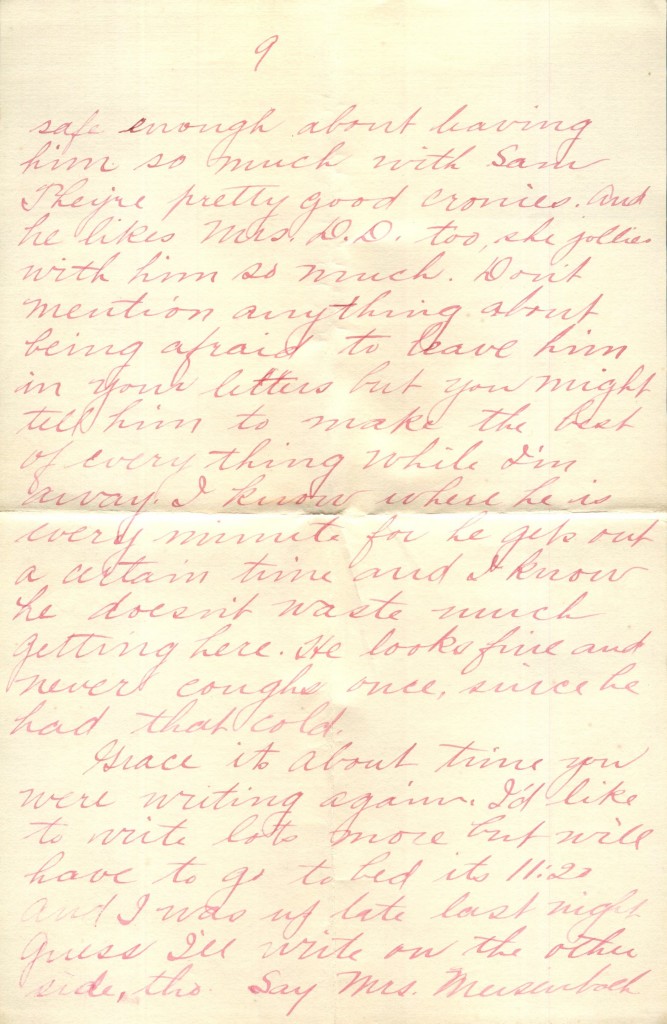 9
safe enough about leaving
him so much with Sam
They're pretty good cronies. And
he likes Mrs. D.D. too, she jollies
with him so much. Don't
mention anything about
being afraid to leave him
in your letters but you might
tell him to make the best
of everything while I'm
away. I know where he is
every minute for he gets out
a certain time and I know
he doesn't waste much
getting here. He looks fine and
never coughs once, since he
had that cold.
Grace its about time you
were writing again. I'd like
to write lots more but will
have to go to bed its 11:20
And I was up late last night
Guess I'll write on the other
side, tho. Say Mrs. Meisenbach